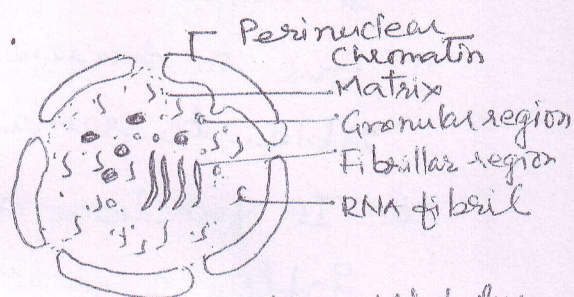 Perinuclear
Chromatin
Matrix
Granular region
Fibrillar region
RNA fibril